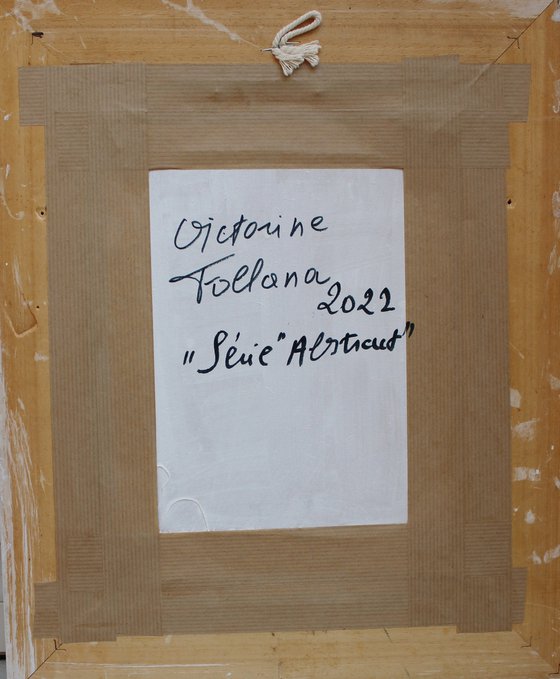 Victorine
Follana
2022
"Série" Abstract"